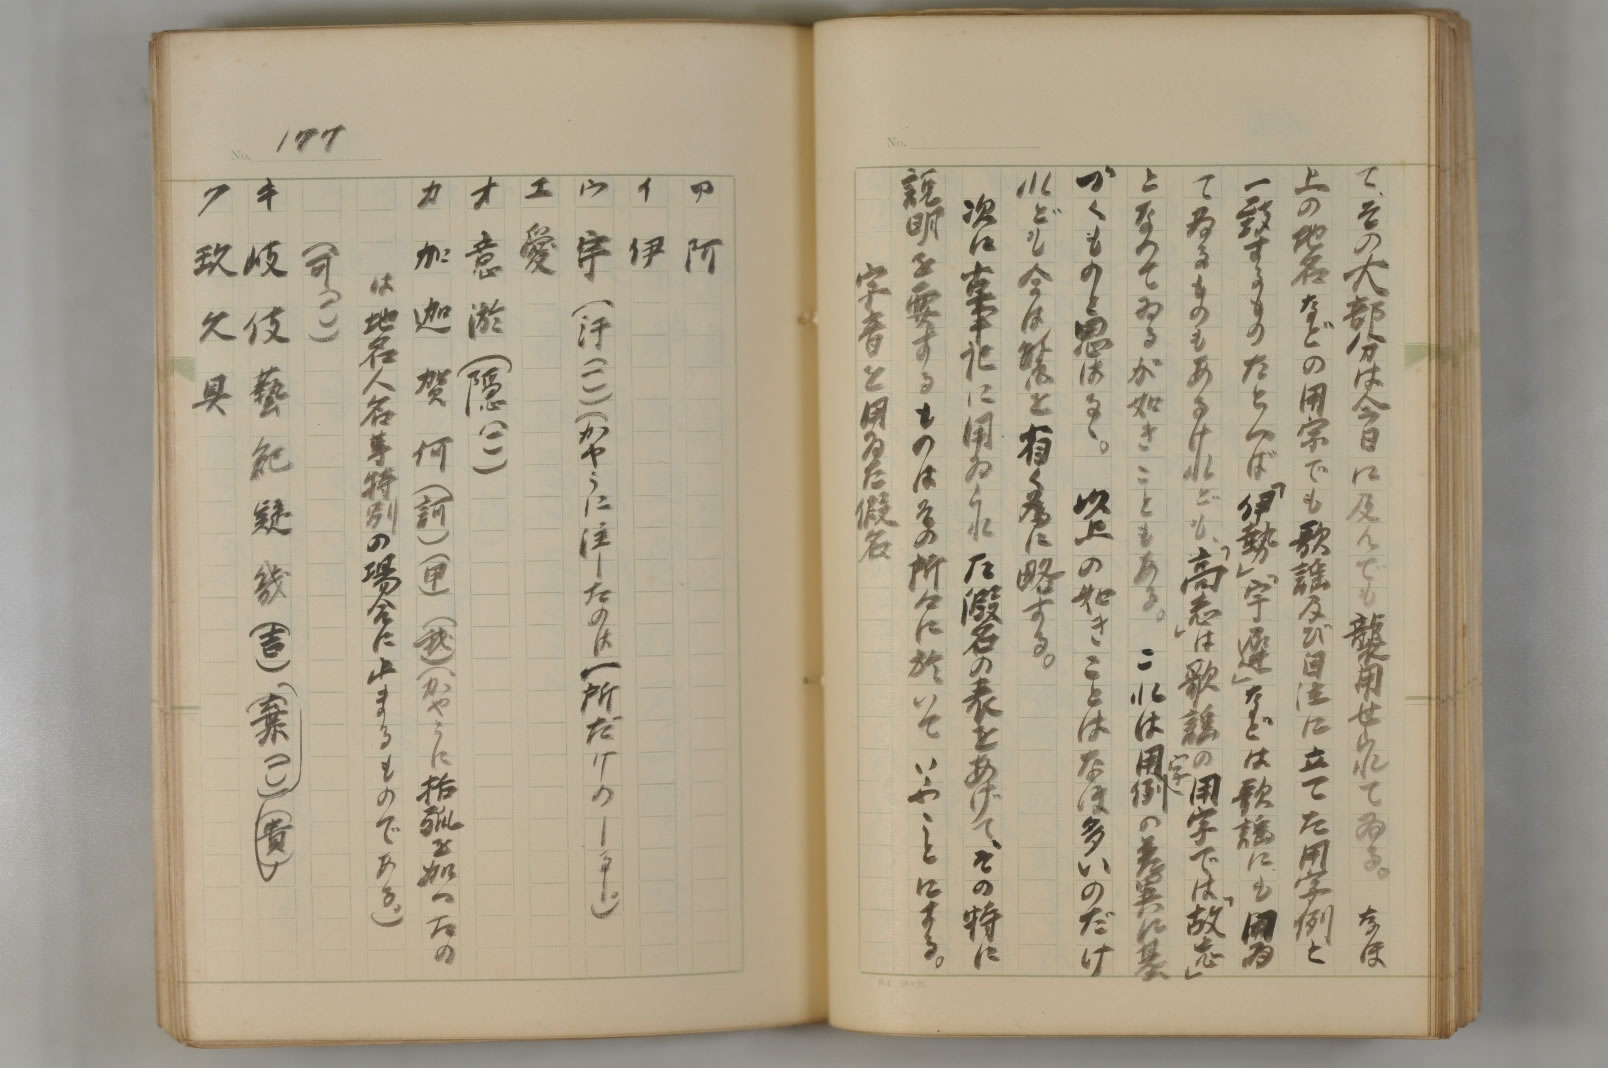 て、その大部分は今日に及んでも襲用せられてゐる。なほ
上の地名などの用字でも歌謡及び自注に立てた用字例と
一致するものたとへば「伊勢」「宇遲」などは歌謡にも用ゐ
てゐるものもあるけれども、「高志」は歌謡の用字では「故志」
となつてゐるが如きこともある。これは用字例の差異に基
づくものと思はるゝ。以上の如きことはなほ多いのだけ
れども今は繁を省く為に略する。
次に古事記に用ゐられた假名の表をあげて、その特に
説明を要するものはその所々に於いていふことにする。
字音を用ゐた假名
No. 177
ア 阿
イ 伊
ウ 宇 (汙(一)) (かやうに注したのは一所だけのしるし)
エ 愛
オ 意 淤 (隱(一))
カ 加 迦 賀 何 (訶) 甲 (甙) (かやうに括弧を加へたの
は地名人名等特別の場合に止まるものである。)
(可(一))
キ 岐 伎 藝 紀 疑 幾 (吉) (棄(一)) (貴)
ク 玖 久 具
No.